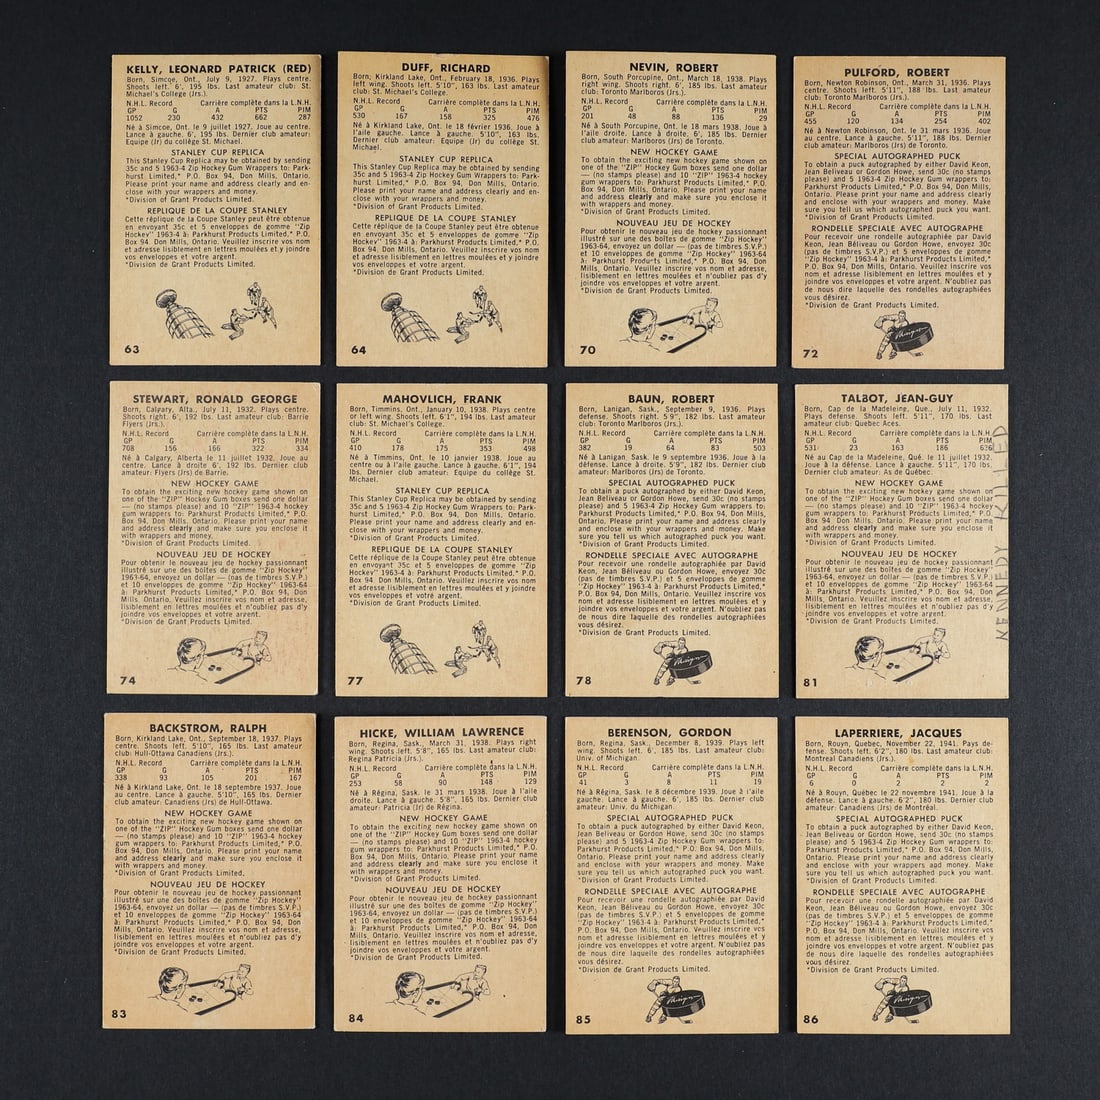 KELLY, LEONARD PATRICK (RED)
Born, Simcoe, Ont., July 9, 1927. Plays centre.
Shoots left. 6', 195 lbs. Last amateur club: St.
Michael's College (Jrs.).
N.H.L. Record Carrière complète dans la L.N.H.
GP G A PTS PIM
1052 230 432 662 287
Né à Simcoe, Ont. le 9 juillet 1927. Joue au centre.
Lance à gauche. 6', 195 lbs. Dernier club amateur:
Equipe (Jr) du collège St. Michael.
STANLEY CUP REPLICA
This Stanley Cup Replica may be obtained by sending
35c and 5 1963-4 Zip Hockey Gum wrappers to: Park-
hurst Limited,* P.O. Box 94, Don Mills, Ontario.
Please print your name and address clearly and en-
close with your wrappers and money.
*Division of Grant Products Limited.
REPLIQUE DE LA COUPE STANLEY
Cette réplica de la Coupe Stanley peut être obtenue
en envoyant 35c et 5 enveloppes de gomme "Zip
Hockey" 1963-4 à: Parkhurst Products Limited,* P.O.
Box 94 Don Mills, Ontario. Veuillez inscrire vos nom et
adresse lisiblement en lettres moulées et y joindre
vos enveloppes et votre argent.
*Division de Grant Products Limited.
63
DUFF, RICHARD
Born, Kirkland Lake, Ont., February 18, 1936. Plays
left wing. Shoots left. 5'10", 163 lbs. Last amateur
club: St. Michael's College.
N.H.L. Record Carrière complète dans la L.N.H.
GP G A PTS PIM
530 167 158 325 476
Né à Kirkland Lake, Ont. le 18 février 1936. Joue à
l'aile gauche. Lance à gauche. 5'10", 163 lbs.
Dernier club amateur: Equipe (Jr) du collège St.
Michael.
STANLEY CUP REPLICA
This Stanley Cup Replica may be obtained by sending
35c and 5 1963-4 Zip Hockey Gum wrappers to: Park-
hurst Products Limited,* P.O. Box 94, Don Mills, Ontario.
Please print your name and address clearly and en-
close with your wrappers and money.
*Division of Grant Products Limited.
REPLIQUE DE LA COUPE STANLEY
Cette réplica de la Coupe Stanley peut être obtenue
en envoyant 35c et 5 enveloppes de gomme "Zip
Hockey" 1963-4 à: Parkhurst Products Limited,* P.O.
Box 94 Don Mills, Ontario. Veuillez inscrire vos nom
et adresse lisiblement en lettres moulées et y joindre
vos enveloppes et votre argent.
*Division de Grant Products Limited.
64
NEVIN, ROBERT
Born, South Porcupine, Ont., March 18, 1938. Plays
right wing. Shoots right. 6', 185 lbs. Last amateur
club: Toronto Marlboros (Jrs.).
N.H.L. Record Carrière complète dans la L.N.H.
GP G A PTS PIM
201 48 88 136 29
Né à South Porcupine, Ont. le 18 mars 1938. Joue à
l'aile droite. Lance à droite. 6', 185 lbs. Dernier club
amateur: Marlboros (Jrs) de Toronto.
NEW HOCKEY GAME
To obtain the exciting new hockey game shown on
one of the "ZIP" Hockey Gum boxes send one dollar
— (no stamps please) and 10 "ZIP" 1963-4 hockey
gum wrappers to: Parkhurst Products Limited,* P.O.
Box 94, Don Mills, Ontario. Please print your name
and address clearly and make sure you enclose it
with wrappers and money.
*Division of Grant Products Limited.
NOUVEAU JEU DE HOCKEY
Pour obtenir le nouveau jeu de hockey passionnant
illustré sur une des boîtes de gomme "Zip Hockey"
1963-64, envoyez un dollar — (pas de timbres S.V.P.)
et 10 enveloppes de gomme "Zip Hockey" 1963-64
à: Parkhurst Products Limited,* P.O. Box 94, Don
Mills, Ontario. Veuillez inscrire vos nom et adresse,
lisiblement en lettres moulées et n'oubliez pas d'y
joindre vos enveloppes et votre argent.
*Division de Grant Products Limited.
70
PULFORD, ROBERT
Born, Newton Robinson, Ont., March 31, 1936. Plays
centre. Shoots left. 5'11", 188 lbs. Last amateur
club: Toronto Marlboros (Jrs.).
N.H.L. Record Carrière complète dans la L.N.H.
GP G A PTS PIM
455 120 134 254 402
Né à Newton Robinson, Ont. le 31 mars 1936. Joue
au centre. Lance à gauche. 5'11", 188 lbs. Dernier
club amateur: Marlboros (Jrs) de Toronto.
SPECIAL AUTOGRAPHED PUCK
To obtain a puck autographed by either David Keon,
Jean Béliveau or Gordon Howe, send 30c (no stamps
please) and 5 1963-4 Zip Hockey Gum wrappers to:
Parkhurst Products Limited,* P.O. Box 94 Don Mills,
Ontario. Please print your name and address clearly
and enclose with your wrappers and money. Make
sure you tell us which autographed puck you want.
*Division of Grant Products Limited.
RONDELLE SPECIALE AVEC AUTOGRAPHE
Pour recevoir une rondelle autographiée par David
Keon, Jean Béliveau ou Gordon Howe, envoyez 30c
(pas de timbres S.V.P.) et 5 enveloppes de gomme
"Zip Hockey" 1963-4 à: Parkhurst Products Limited,*
P.O. Box 94, Don Mills, Ontario. Veuillez inscrire vos
nom et adresse lisiblement en lettres moulées et y
joindre vos enveloppes et votre argent. N'oubliez pas
de nous dire laquelle des rondelles autographiées
vous désirez.
*Division de Grant Products Limited.
72
STEWART, RONALD GEORGE
Born, Calgary, Alta., July 11, 1932. Plays centre.
Shoots right. 6', 192 lbs. Last amateur club: Barrie
Flyers (Jrs.).
N.H.L. Record Carrière complète dans la L.N.H.
GP G A PTS PIM
708 156 166 322 334
Né à Calgary, Alberta le 11 juillet 1932. Joue au
centre. Lance à droite 6', 192 lbs. Dernier club
amateur: Flyers (Jrs) de Barrie.
NEW HOCKEY GAME
To obtain the exciting new hockey game shown on
one of the "ZIP" Hockey Gum boxes send one dollar
— (no stamps please) and 10 "ZIP" 1963-4 hockey
gum wrappers to: Parkhurst Products Limited,* P.O.
Box 94, Don Mills, Ontario. Please print your name
and address clearly and make sure you enclose it
with wrappers and money.
*Division of Grant Products Limited.
NOUVEAU JEU DE HOCKEY
Pour obtenir le nouveau jeu de hockey passionnant
illustré sur une des boîtes de gomme "Zip Hockey"
1963-64, envoyez un dollar — (pas de timbres S.V.P.)
et 10 enveloppes de gomme "Zip Hockey" 1963-64
à: Parkhurst Products Limited,* P.O. Box 94, Don
Mills, Ontario. Veuillez inscrire vos nom et adresse,
lisiblement en lettres moulées et n'oubliez pas d'y
joindre vos enveloppes et votre argent.
*Division de Grant Products Limited.
74
MAHOVLICH, FRANK
Born, Timmins, Ont., January 10, 1938. Plays centre
or left wing. Shoots left. 6'1", 194 lbs. Last amateur
club: St. Michael's College.
N.H.L. Record Carrière complète dans la L.N.H.
GP G A PTS PIM
410 178 175 353 498
Né à Timmins, Ont. le 10 janvier 1938. Joue au
centre ou à l'aile gauche. Lance à gauche. 6'1", 194
lbs. Dernier club amateur: Equipe du collège St.
Michael.
STANLEY CUP REPLICA
This Stanley Cup Replica may be obtained by sending
35c and 5 1963-4 Zip Hockey Gum wrappers to: Park-
hurst Products Limited,* P.O. Box 94, Don Mills, Ontario.
Please print your name and address clearly and en-
close with your wrappers and money.
*Division of Grant Products Limited.
REPLIQUE DE LA COUPE STANLEY
Cette réplica de la Coupe Stanley peut être obtenue
en envoyant 35c et 5 enveloppes de gomme "Zip
Hockey" 1963-4 à: Parkhurst Products Limited,* P.O.
Box 94 Don Mills, Ontario. Veuillez inscrire vos nom
et adresse lisiblement en lettres moulées et y joindre
vos enveloppes et votre argent.
*Division de Grant Products Limited.
77
BAUN, ROBERT
Born, Lanigan, Sask., September 9, 1936. Plays
defense. Shoots right. 5'9", 182 lbs. Last amateur
club: Toronto Marlboros (Jrs.).
N.H.L. Record Carrière complète dans la L.N.H.
GP G A PTS PIM
382 19 64 83 503
Né à Lanigan Sask. le 9 septembre 1936. Joue à la
défense. Lance à droite. 5'9", 182 lbs. Dernier club
amateur: Marlboros (Jrs) de Toronto.
SPECIAL AUTOGRAPHED PUCK
To obtain a puck autographed by either David Keon,
Jean Béliveau or Gordon Howe, send 30c (no stamps
please) and 5 1963-4 Zip Hockey Gum wrappers to:
Parkhurst Products Limited,* P.O. Box 94 Don Mills,
Ontario. Please print your name and address clearly
and enclose with your wrappers and money. Make
sure you tell us which autographed puck you want.
*Division of Grant Products Limited.
RONDELLE SPECIALE AVEC AUTOGRAPHE
Pour recevoir une rondelle autographiée par David
Keon, Jean Béliveau ou Gordon Howe, envoyez 30c
(pas de timbres S.V.P.) et 5 enveloppes de gomme
"Zip Hockey" 1963-4 à: Parkhurst Products Limited,*
P.O. Box 94, Don Mills, Ontario. Veuillez inscrire vos
nom et adresse lisiblement en lettres moulées et y
joindre vos enveloppes et votre argent. N'oubliez pas
de nous dire laquelle des rondelles autographiées
vous désirez.
*Division de Grant Products Limited.
78
TALBOT, JEAN-GUY
Born, Cap de la Madeleine, Que., July 11, 1932.
Plays defense. Shoots left. 5'11", 170 lbs. Last
amateur club: Quebec Aces.
N.H.L. Record Carrière complète dans la L.N.H.
GP G A PTS PIM
531 23 163 186 636
Né au Cap de la Madeleine, Qué. le 11 juillet 1932.
Joue à la défense. Lance à gauche. 5'11", 170 lbs.
Dernier club amateur: As de Québec.
NEW HOCKEY GAME
To obtain the exciting new hockey game shown on
one of the "ZIP" Hockey Gum boxes send one dollar
— (no stamps please) and 10 "ZIP" 1963-4 hockey
gum wrappers to: Parkhurst Products Limited,* P.O.
Box 94, Don Mills, Ontario. Please print your name
and address clearly and make sure you enclose it
with wrappers and money.
*Division of Grant Products Limited.
NOUVEAU JEU DE HOCKEY
Pour obtenir le nouveau jeu de hockey passionnant
illustré sur une des boîtes de gomme "Zip Hockey"
1963-64, envoyez un dollar — (pas de timbres S.V.P.)
et 10 enveloppes de gomme "Zip Hockey" 1963-64
à: Parkhurst Products Limited,* P.O. Box 94, Don
Mills, Ontario. Veuillez inscrire vos nom et adresse,
lisiblement en lettres moulées et n'oubliez pas d'y
joindre vos enveloppes et votre argent.
*Division de Grant Products Limited.
81
KENNEDY KILLED
BACKSTROM, RALPH
Born, Kirkland Lake, Ont., September 18, 1937. Plays
centre. Shoots left. 5'10", 165 lbs. Last amateur
club: Hull-Ottawa Canadiens (Jrs.).
N.H.L. Record Carrière complète dans la L.N.H.
GP G A PTS PIM
338 93 105 201 167
Né à Kirkland Lake, Ont. le 18 septembre 1937. Joue
au centre. Lance à gauche. 5'10", 165 lbs. Dernier
club amateur: Canadiens (Jrs) de Hull-Ottawa.
NEW HOCKEY GAME
To obtain the exciting new hockey game shown on
one of the "ZIP" Hockey Gum boxes send one dollar
— (no stamps please) and 10 "ZIP" 1963-4 hockey
gum wrappers to: Parkhurst Products Limited,* P.O.
Box 94, Don Mills, Ontario. Please print your name
and address clearly and make sure you enclose it
with wrappers and money.
*Division of Grant Products Limited.
NOUVEAU JEU DE HOCKEY
Pour obtenir le nouveau jeu de hockey passionnant
illustré sur une des boîtes de gomme "Zip Hockey"
1963-64, envoyez un dollar — (pas de timbres S.V.P.)
et 10 enveloppes de gomme "Zip Hockey" 1963-64
à: Parkhurst Products Limited,* P.O. Box 94, Don
Mills, Ontario. Veuillez inscrire vos nom et adresse,
lisiblement en lettres moulées et n'oubliez pas d'y
joindre vos enveloppes et votre argent.
*Division de Grant Products Limited.
83
HICKE, WILLIAM LAWRENCE
Born, Regina, Sask., March 31, 1938. Plays right
wing. Shoots left. 5'8", 165 lbs. Last amateur club:
Regina Patricia (Jrs.).
N.H.L. Record Carrière complète dans la L.N.H.
GP G A PTS PIM
253 58 90 148 129
Né à Régina, Sask. le 31 mars 1938. Joue à l'aile
droite. Lance à gauche. 5'8", 165 lbs. Dernier club
amateur: Patricia (Jr) de Régina.
NEW HOCKEY GAME
To obtain the exciting new hockey game shown on
one of the "ZIP" Hockey Gum boxes send one dollar
— (no stamps please) and 10 "ZIP" 1963-4 hockey
gum wrappers to: Parkhurst Products Limited,* P.O.
Box 94, Don Mills, Ontario. Please print your name
and address clearly and make sure you enclose it
with wrappers and money.
*Division of Grant Products Limited.
NOUVEAU JEU DE HOCKEY
Pour obtenir le nouveau jeu de hockey passionnant
illustré sur une des boîtes de gomme "Zip Hockey"
1963-64, envoyez un dollar — (pas de timbres S.V.P.)
et 10 enveloppes de gomme "Zip Hockey" 1963-64
à: Parkhurst Products Limited,* P.O. Box 94, Don
Mills, Ontario. Veuillez inscrire vos nom et adresse,
lisiblement en lettres moulées et n'oubliez pas d'y
joindre vos enveloppes et votre argent.
*Division de Grant Products Limited.
84
BERENSON, GORDON
Born, Regina, Sask., December 8, 1939. Plays left
wing. Shoots left. 6', 185 lbs. Last amateur club:
Univ. of Michigan.
N.H.L. Record Carrière complète dans la L.N.H.
GP G A PTS PIM
41 3 8 11 19
Né à Régina, Sask. le 8 décembre 1939. Joue à l'aile
gauche. Lance à gauche. 6', 185 lbs. Dernier club
amateur: Univ. du Michigan.
SPECIAL AUTOGRAPHED PUCK
To obtain a puck autographed by either David Keon,
Jean Béliveau or Gordon Howe, send 30c (no stamps
please) and 5 1963-4 Zip Hockey Gum wrappers to:
Parkhurst Products Limited,* P.O. Box 94 Don Mills,
Ontario. Please print your name and address clearly
and enclose with your wrappers and money. Make
sure you tell us which autographed puck you want.
*Division of Grant Products Limited.
RONDELLE SPECIALE AVEC AUTOGRAPHE
Pour recevoir une rondelle autographiée par David
Keon, Jean Béliveau ou Gordon Howe, envoyez 30c
(pas de timbres S.V.P.) et 5 enveloppes de gomme
"Zip Hockey" 1963-4 à: Parkhurst Products Limited,*
P.O. Box 94, Don Mills, Ontario. Veuillez inscrire vos
nom et adresse lisiblement en lettres moulées et y
joindre vos enveloppes et votre argent. N'oubliez pas
de nous dire laquelle des rondelles autographiées
vous désirez.
*Division de Grant Products Limited.
85
LAPERRIERE, JACQUES
Born, Rouyn, Quebec, November 22, 1941. Pays de-
fense. Shoots left. 6'2", 180 lbs. Last amateur club:
Montreal Canadiens (Jrs.).
N.H.L. Record Carrière complète dans la L.N.H.
GP G A PTS PIM
6 0 2 2 2
Né à Rouyn, Québec le 22 novembre 1941. Joue à la
défense. Lance à gauche. 6'2", 180 lbs. Dernier club
amateur: Canadiens (Jrs) de Montréal.
SPECIAL AUTOGRAPHED PUCK
To obtain a puck autographed by either David Keon,
Jean Béliveau or Gordon Howe, send 30c (no stamps
please) and 5 1963-4 Zip Hockey Gum wrappers to:
Parkhurst Products Limited,* P.O. Box 94 Don Mills,
Ontario. Please print your name and address clearly
and enclose with your wrappers and money. Make
sure you tell us which autographed puck you want.
*Division of Grant Products Limited.
RONDELLE SPECIALE AVEC AUTOGRAPHE
Pour recevoir une rondelle autographiée par David
Keon, Jean Béliveau ou Gordon Howe, envoyez 30c
(pas de timbres S.V.P.) et 5 enveloppes de gomme
"Zip Hockey" 1963-4 à: Parkhurst Products Limited,*
P.O. Box 94, Don Mills, Ontario. Veuillez inscrire vos
nom et adresse lisiblement en lettres moulées et y
joindre vos enveloppes et votre argent. N'oubliez pas
de nous dire laquelle des rondelles autographiées
vous désirez.
*Division de Grant Products Limited.
86